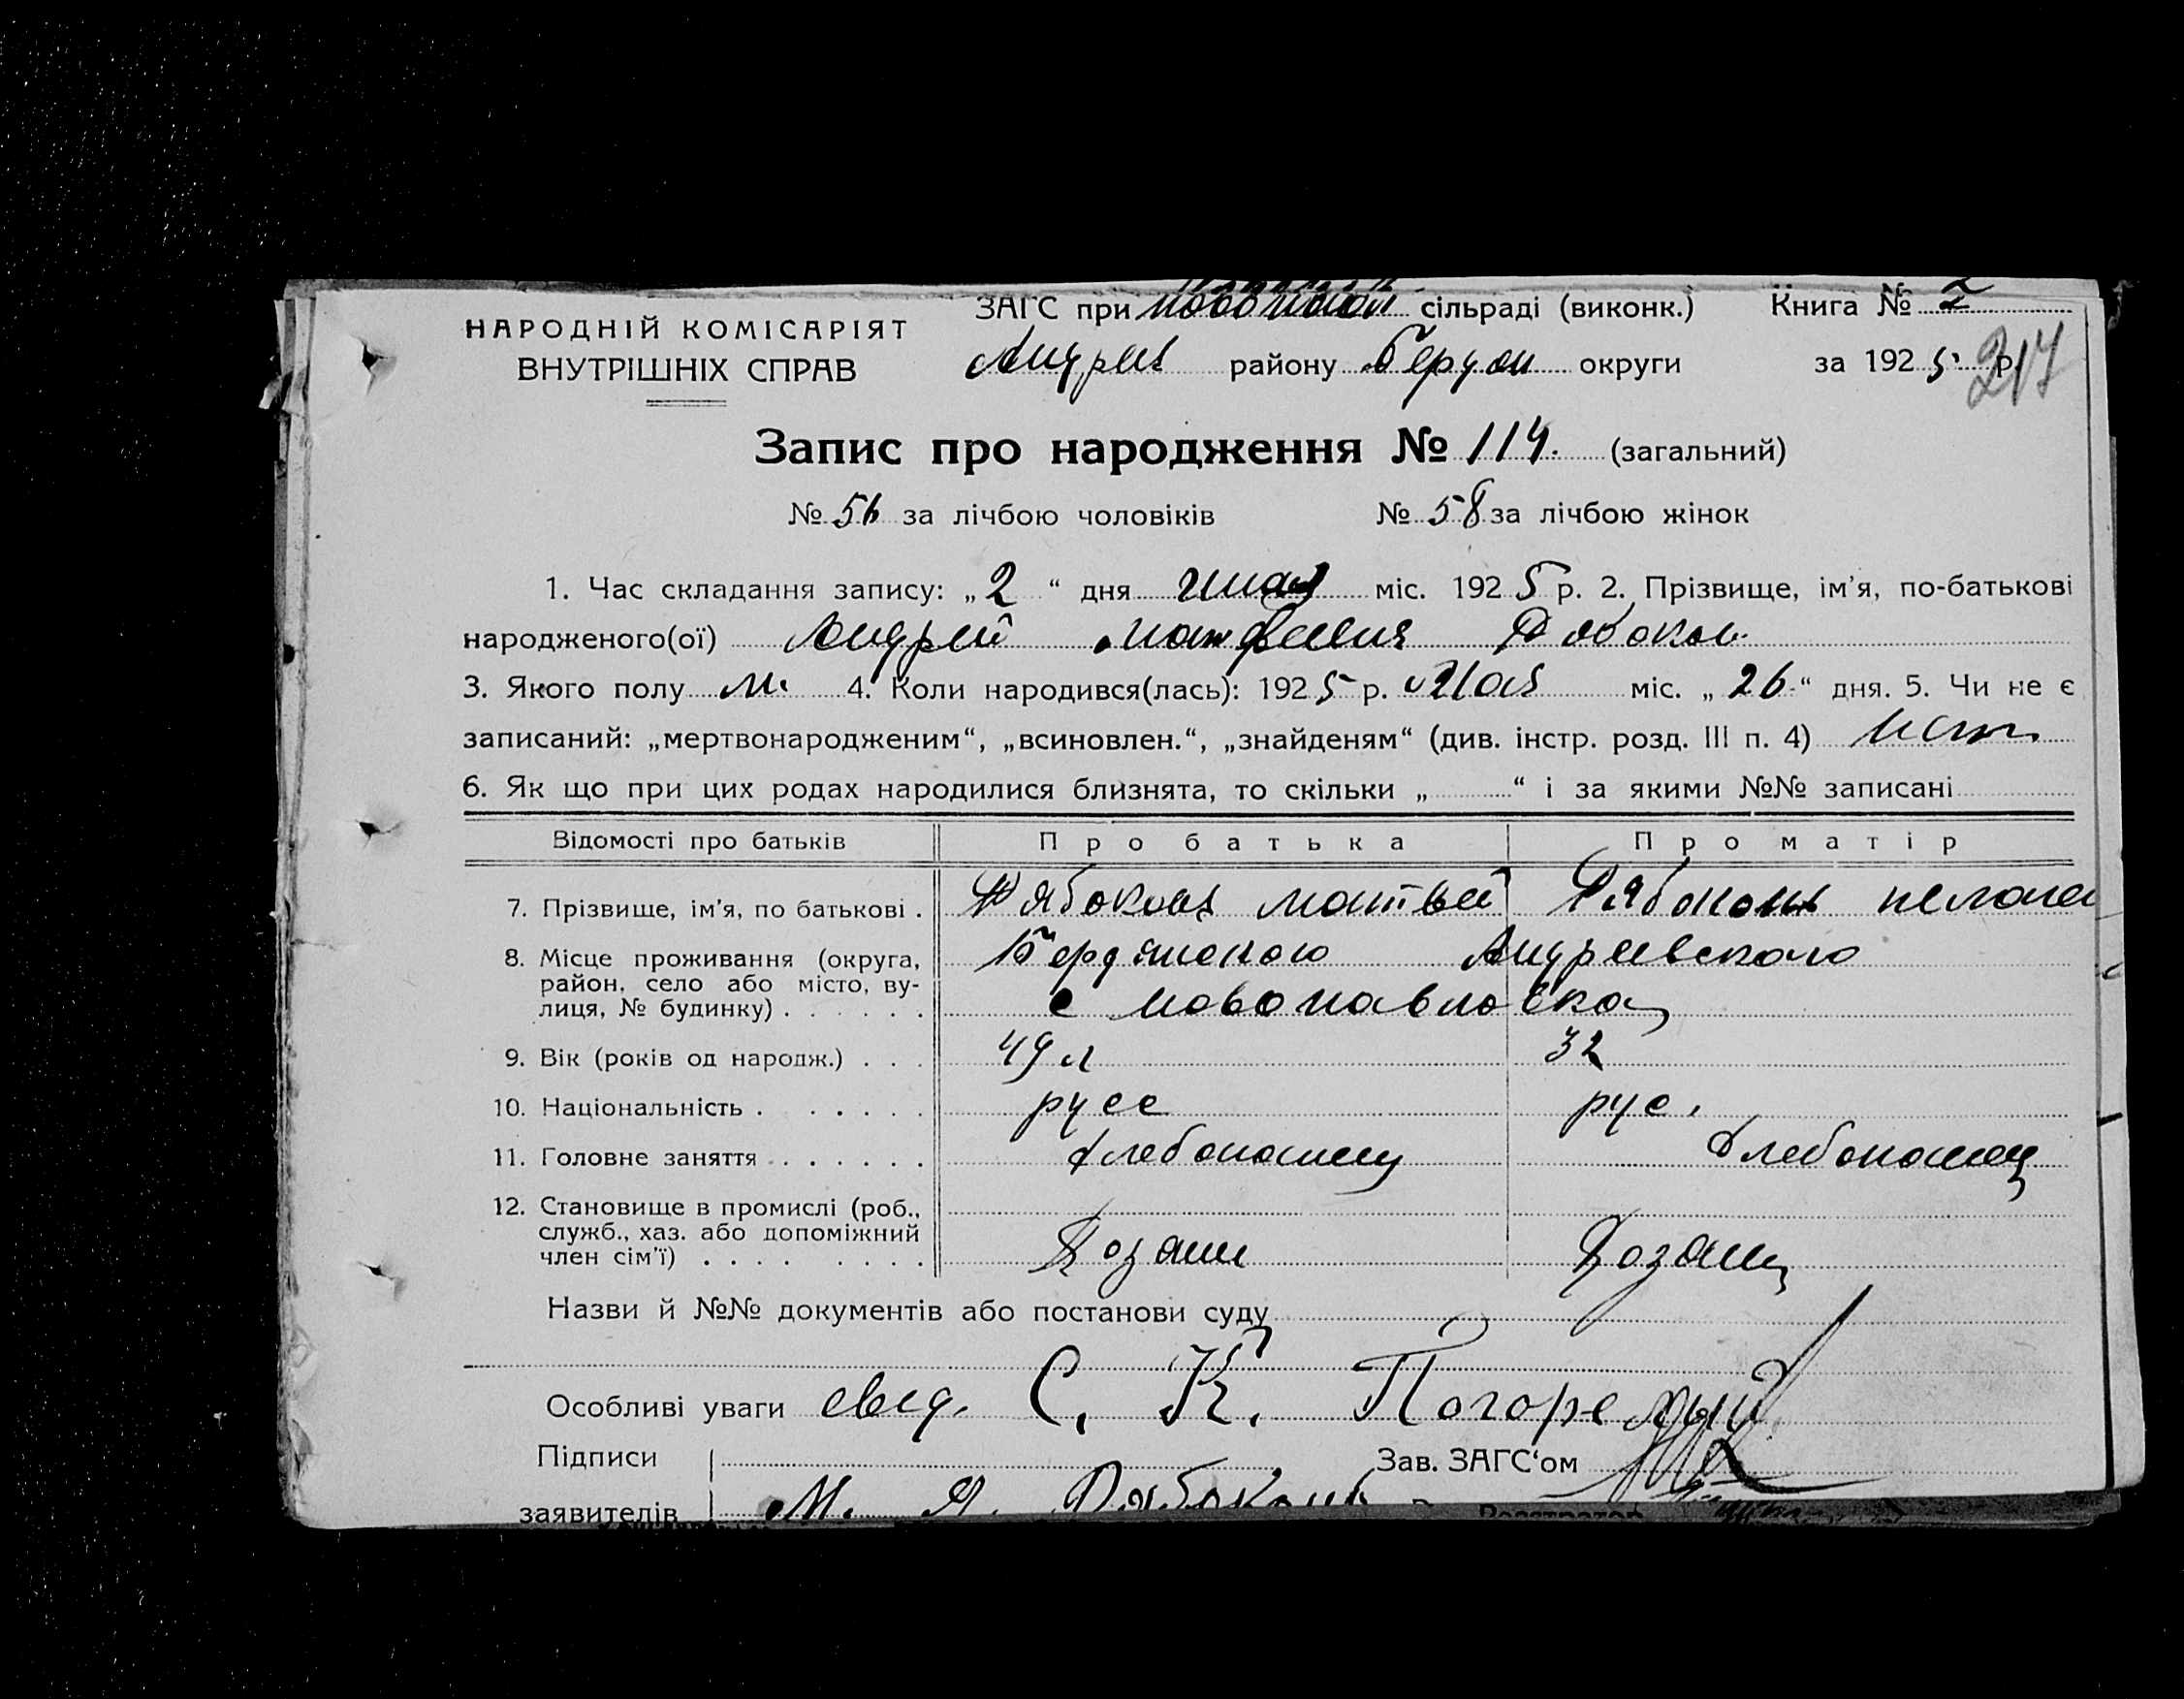 ЗАГС при сільраді (виконк.) Книга № 2
НАРОДНІЙ КОМІСАРІЯТ
ВНУТРІШНІХ СПРАВ
Андреев району Бердян округи за 1925 р.
217
Запис про народження № 114. (загальний)
№ 56 за лічбою чоловіків № 58 за лічбою жінок
1. Час складання запису: „2“ дня міс. 1925 р. 2. Прізвище, ім'я, по-батькові
народженого(ої) Андрей Матфеевич Рябоконь
3. Якого полу м. 4. Коли народився(лась): 1925 р. Мая міс. „26“ дня. 5. Чи не є
записаний: „мертвонародженим“, „всиновлен.“, „знайденям“ (див. інстр. розд. III п. 4) нет
6. Як що при цих родах народилися близнята, то скільки „ “ і за якими №№ записані
Відомості про батьків Про батька Про матір
7. Прізвище, ім'я, по батькові . Рябоконь Матвей Рябоконь
8. Місце проживання (округа, Бердянского Андреевского
район, село або місто, ву-
лиця, № будинку) . . . . . . с Новопавловка
9. Вік (років од народж.) . . . 49 л 32
10. Національність . . . . . . русс рус.
11. Головне заняття . . . . . . хлебопашец хлебопашец
12. Становище в промислі (роб.,
служб., хаз. або допоміжний
член сім'ї) . . . . . . . . Хозяин Хозяин
Назви й №№ документів або постанови суду
Особливі уваги свид. С. К. Погорелый
Підписи Зав. ЗАГС'ом
заявителів М. Я. Рябоконь Реєстратор